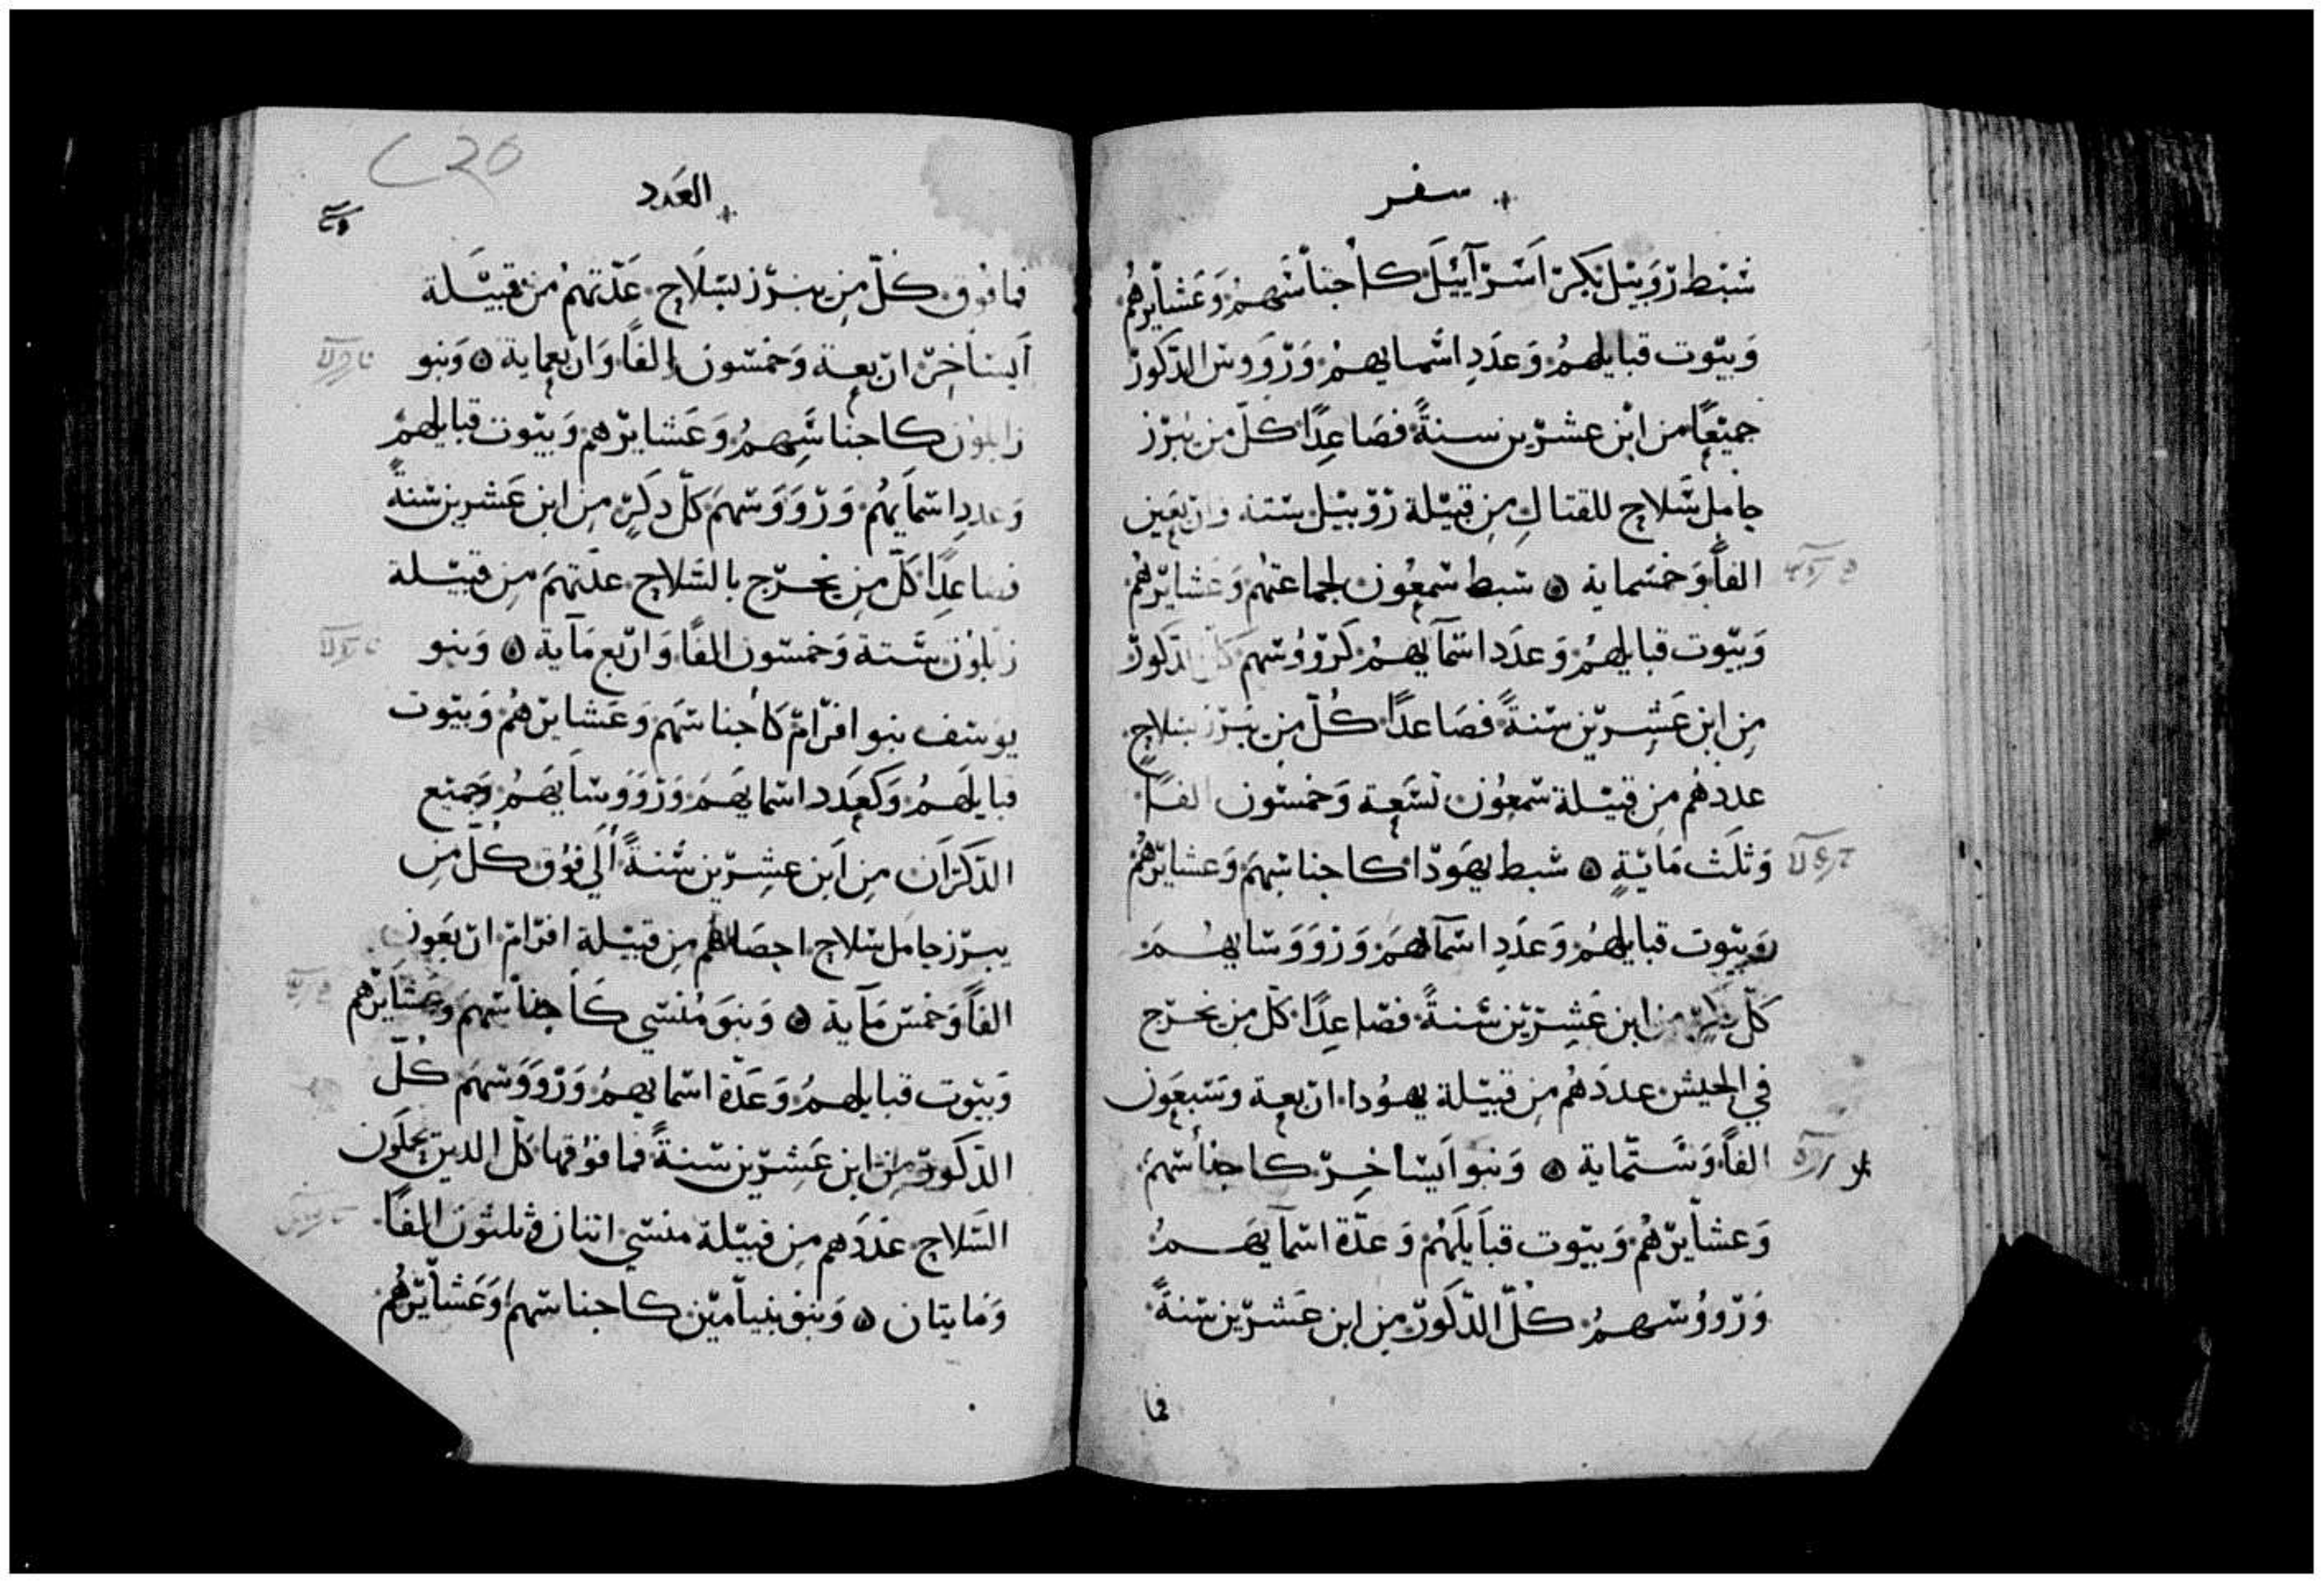 سفر
شبط روبيل بكر اسرآييل كأجناسهم وعشايرهم
وبيوت قبايلهم وعدد اسمايهم ورووس الدكور
جميعًا من ابن عشرين سنةً فصاعدًا كلّ من يبرز
حامل سلاح للقتال من قبيلة روبيل ستة واربعين
الفاً وخمسماية ۞ سبط سمعون لجماعتهم وعشايرهم
وبيوت قبايلهم وعدد اسمآيهم كرووسهم كل الدكور
من ابن عشرين سنةً فصاعدًا كلّ من يبرز بسلاح
عددهم من قبيلة سمعون تسعة وخمسون الفًا
وثلث مايةٍ ۞ شبط يهودا كاجناسهم وعشايرهم
وبيوت قبايلهم وعدد اسمآلهم ورووسايهم
كلّ من ابن عشرين سنةً فصاعدًا كلّ من يخرج
في الجيش عددهم من قبيلة يهودا اربعة وسبعون
الفاً وستّماية ۞ وبنو ايساخر كاجناسهم
وعشايرهم وبيوت قبايلهم وعدّة اسمآيهم
ورووسهم كلّ الدّكور من ابن عشرين سنةً
فما
العدد
226
فما فوق كلّ من يبرز بسلاح عدّتهم من قبيلة
ايساخر اربعة وخمسون الفاً واربعماية ۞ وبنو
زابلون كاجناسهم وعشايرهم وبيوت قبايلهم
وعدد اسمايهم ورووسهم كلّ دكرٍ من ابن عشرين سنةً
فصاعدًا كلّ من يخرج بالسلاح عدّتهم من قبيلة
زبلون ستة وخمسون الفًا واربع مآية ۞ وبنو
يوسف بنو افرام كأجناسهم وعشايرهم وبيوت
قبايلهم وكعدد اسمايهم ورووسايهم وجميع
الدّكران من ابن عشرين سنةً الي فوق كلّ من
يبرز حامل سلاح احصاهم من قبيلة افرام اربعون
الفاً وخمس مآية ۞ وبنو منسي كأجناسهم وعشايرهم
وبيوت قبايلهم وعدّة اسمايهم ورووسهم كلّ
الدّكور من ابن عشرين سنةً فما فوقها كلّ الدين يحملون
السّلاح عددهم من قبيلة منسي اتنان وثلثون الفاً
ومايتان ۞ وبنو بنيامين كاجناسهم وعشايرهم